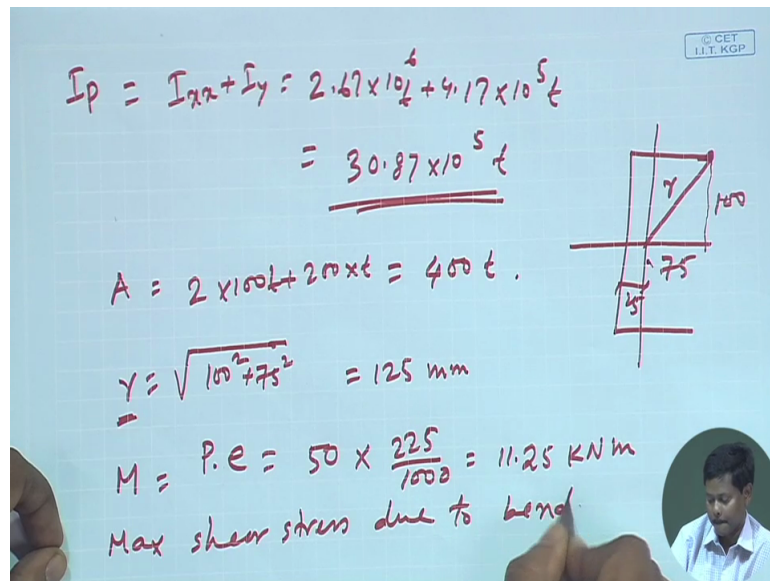 © CET
I.I.T. KGP
Ip = Ixx + Iy = 2.67×10⁶t + 4.17×10⁵t
= 30.87×10⁵ t
A = 2×100t + 200×t = 400t.
r = √100²+75² = 125 mm
M = P.e = 50 × 225/1000 = 11.25 KNm
Max shear stress due to bend
r
100
75
25